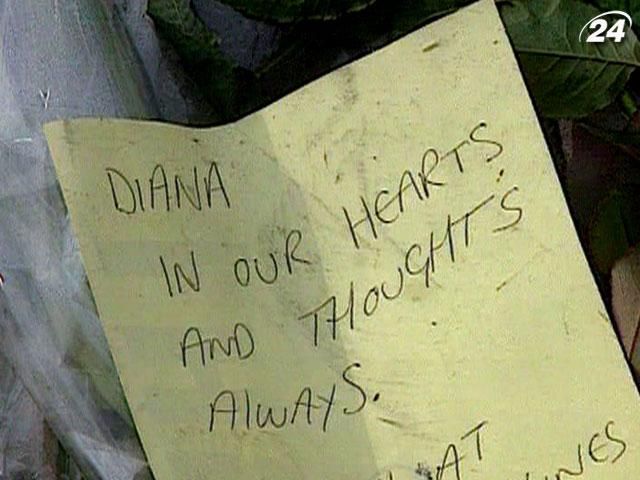 24
DIANA
IN OUR HEARTS
AND THOUGHTS
ALWAYS.
AT